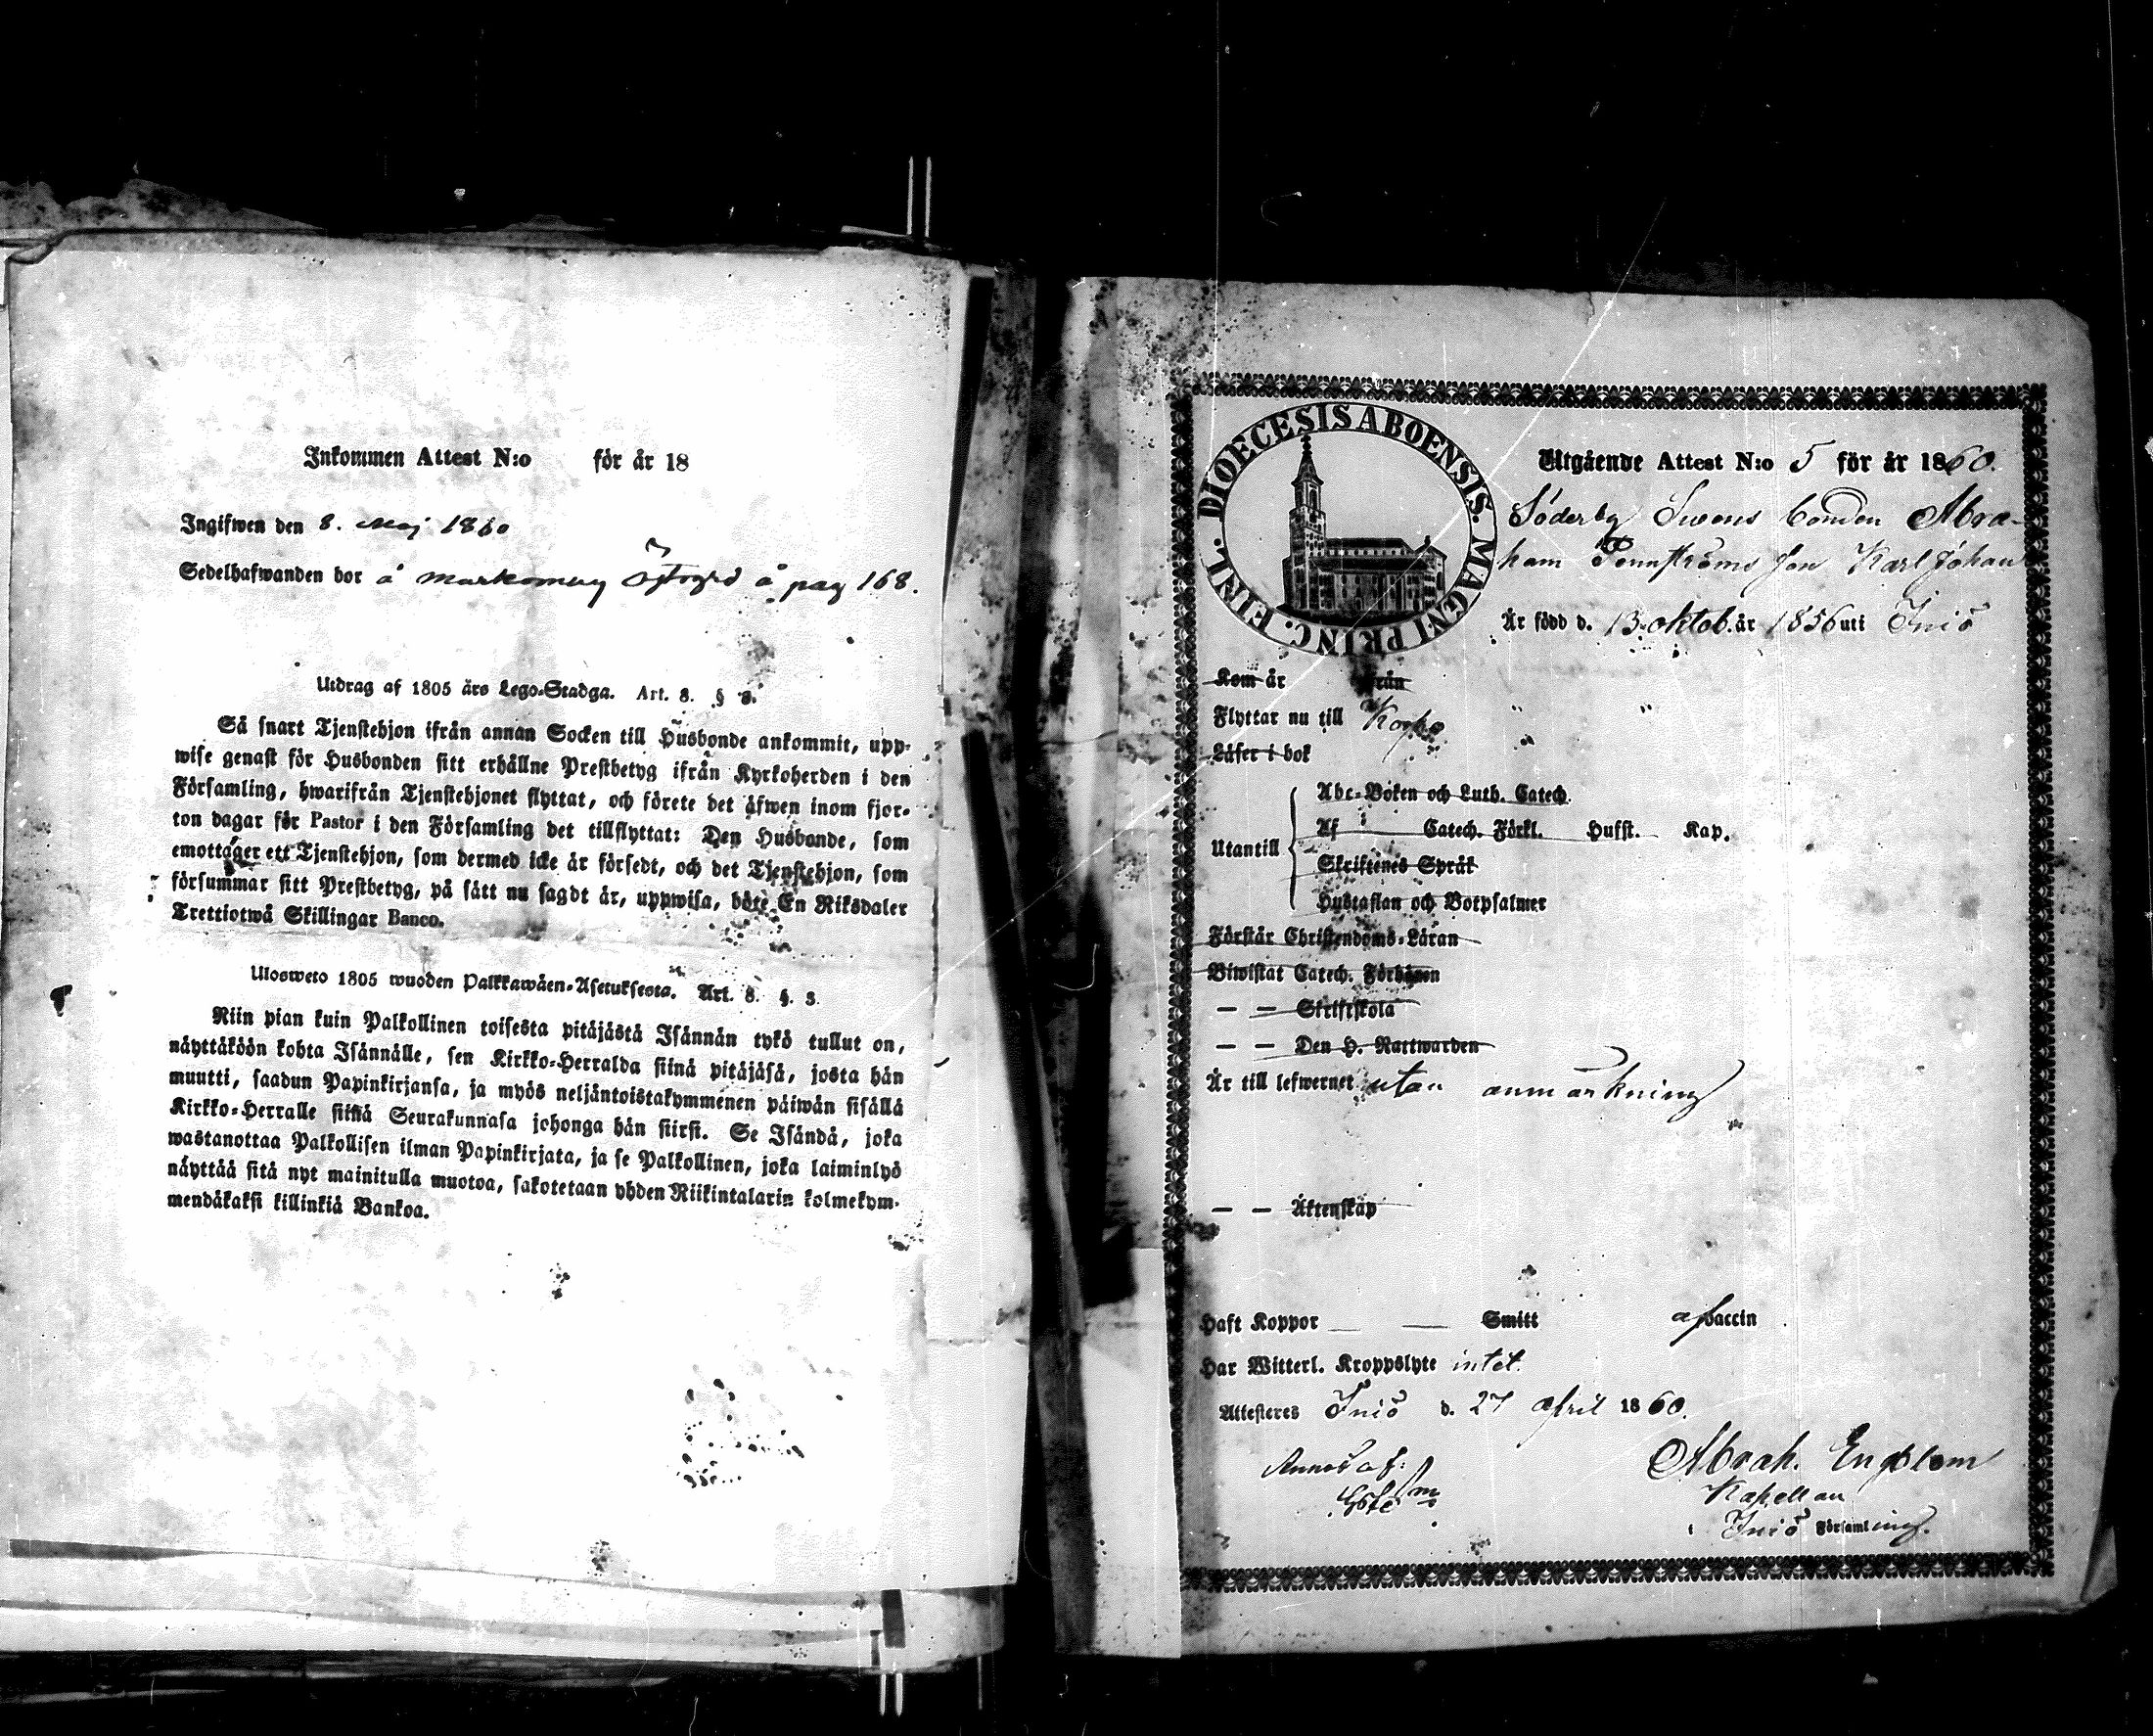 Inkommen Attest N:o för år 18
Ingifwen den 8. Maj 1860
Sedelhafwanden bor å markomby Östergrd å pag 168.
Utdrag af 1805 års Lego-Stadga. Art. 8. § 3.
Så snart Tjenstehjon ifrån annan Socken till Husbonde ankommit, upp-
wise genast för Husbonden sitt erhållne Prestbetyg ifrån Kyrkoherden i den
Församling, hwarifrån Tjenstehjonet flyttat, och förete det äfwen inom fjor-
ton dagar för Pastor i den Församling det tillflyttat: Den Husbonde, som
emottager ett Tjenstehjon, som dermed icke är försedt, och det Tjenstehjon, som
försummar sitt Prestbetyg, på sätt nu sagdt är, uppwisa, böte En Riksdaler
Trettiotwå Skillingar Banco.
Ulosweto 1805 wuoden Palkkawäen-Asetuksesta. Art. 8. §. 3.
Niin pian kuin Palkollinen toisesta pitäjästä Isännän tykö tullut on,
näyttäköön kohta Isännälle, sen Kirkko-Herralda siinä pitäjäsä, josta hän
muutti, saadun Papinkirjansa, ja myös neljäntoistakymmenen päiwän sisällä
Kirkko-Herralle siinä Seurakunnasa johonga hän siirsi. Se Isändä, joka
wastanottaa Palkollisen ilman Papinkirjata, ja se Palkollinen, joka laiminlyö
näyttää sitä nyt mainitulla muotoa, sakotetaan yhden Riikintalarin kolmekym-
mendäkaksi killinkiä Bankoa.
DIOECESIS ABOENSIS. MAGNI PRINC. FINL.
Utgående Attest N:o 5 för år 1860.
Söderby Swens bonden Abra-
ham Tennströms son Karl Johan
Är född d. 13. oktob. år 1856 uti Iniö
Kom år från
Flyttar nu till Korpo
Läser i bok
Abc-Boken och Luth. Catech.
Utantill Af Catech. Förkl. Hufst. Kap.
Skriftenes Språk
Hustaflan och Botpsalmer
Förstår Christendoms-Läran
Biwistat Catech. Förhören
— — Skriftskola
— — Den H. Nattwarden
Är till lefwernet utan anmärkning
— — Äktenskap
Haft Koppor — — Smitt af vaccin
Har Witterl. Kroppslyte intet.
Attesteres Iniö d. 27 April 1860.
Abrah. Engblom
Kapellan
Iniö Församling.